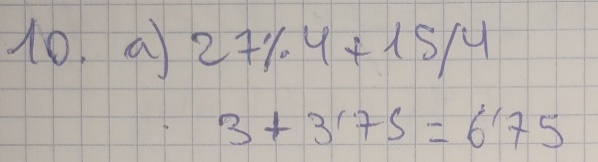 10. a) 27%4 + 15/4
3 + 3'75 = 6'75